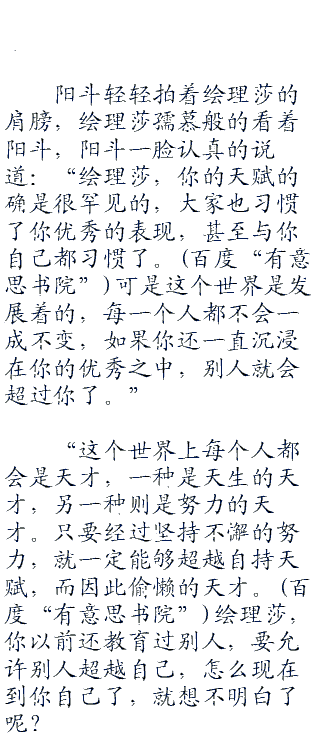 阳斗轻轻拍着绘理莎的
肩膀，绘理莎孺慕般的看着
阳斗，阳斗一脸认真的说
道：“绘理莎，你的天赋的
确是很罕见的，大家也习惯
了你优秀的表现，甚至与你
自己都习惯了。(百度“有意
思书院”)可是这个世界是发
展着的，每一个人都不会一
成不变，如果你还一直沉浸
在你的优秀之中，别人就会
超过你了。”
“这个世界上每个人都
会是天才，一种是天生的天
才，另一种则是努力的天
才。只要经过坚持不懈的努
力，就一定能够超越自持天
赋，而因此偷懒的天才。(百
度“有意思书院”)绘理莎，
你以前还教育过别人，要允
许别人超越自己，怎么现在
到你自己了，就想不明白了
呢？